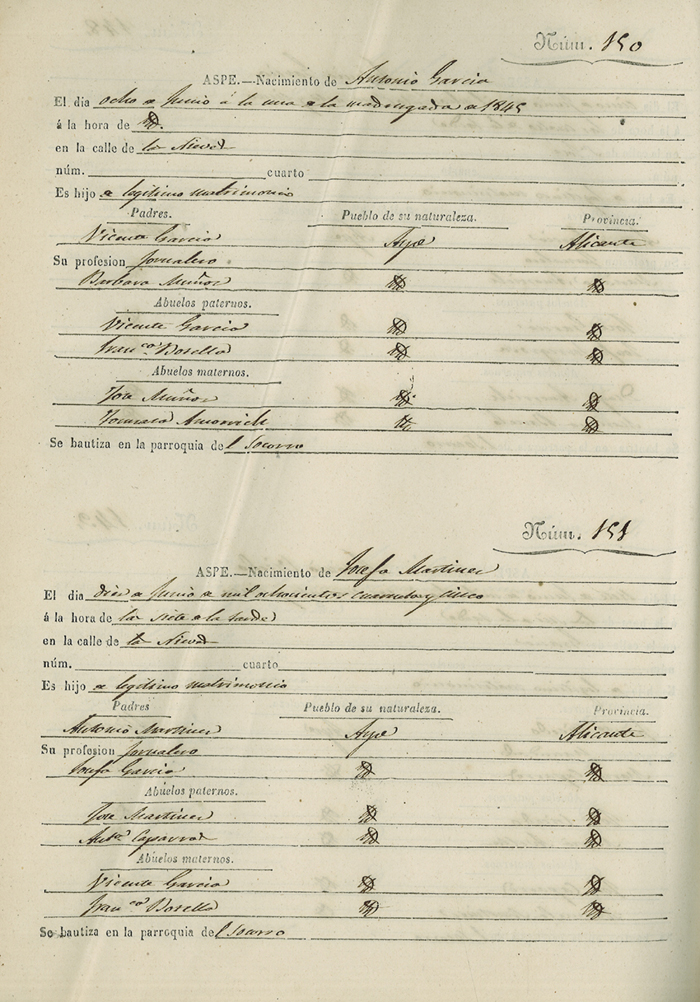 Núm. 150
ASPE.—Nacimiento de Antonio Garcia
El dia ocho de Junio á la una de la madrugada de 1845
á la hora de id.
en la calle de la Nieve
núm. cuarto
Es hijo de legitimo matrimonio
Padres. Pueblo de su naturaleza. Provincia.
Vicente Garcia Aspe Alicante
Su profesion Jornalero
Barbara Muñoz id id
Abuelos paternos.
Vicente Garcia id id
Franca Botella id id
Abuelos maternos.
Jose Muñoz id id
Tomasa id id
Se bautiza en la parroquia del Socorro
Núm. 151
ASPE.—Nacimiento de Josefa Martinez
El dia diez de Junio de mil ochocientos cuarenta y cinco
á la hora de las siete de la tarde
en la calle de la Nieve
núm. cuarto
Es hijo de legitimo matrimonio
Padres Pueblo de su naturaleza. Provincia.
Antonio Martinez Aspe Alicante
Su profesion Jornalero
Josefa Garcia id id
Abuelos paternos.
Jose Martinez id id
Anta Caparros id id
Abuelos maternos.
Vicente Garcia id id
Franca Botella id id
Se bautiza en la parroquia del Socorro